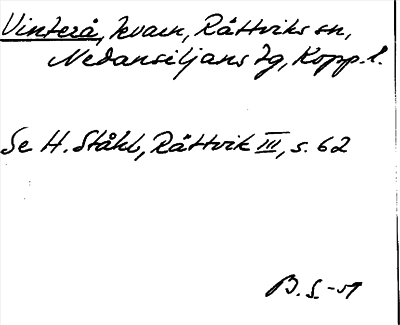 Vinterå, kvarn, Rättviks sn,
Nedansiljans tg, Kopp. l.
Se H. Ståhl, Rättvik III, s. 62
B. S-n